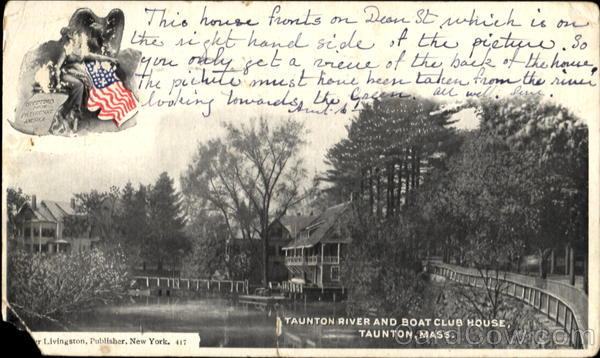 This house fronts on Dean St. which is on
the right hand side of the picture. So
you only get a view of the back of the house,
The picture must have been taken from the river
looking towards the Green. All well. love.
GREETINGS
FROM
PICTURESQUE
AMERICA
TAUNTON RIVER AND BOAT CLUB HOUSE,
TAUNTON, MASS.
Livingston, Publisher, New York. 417
CardCow.com